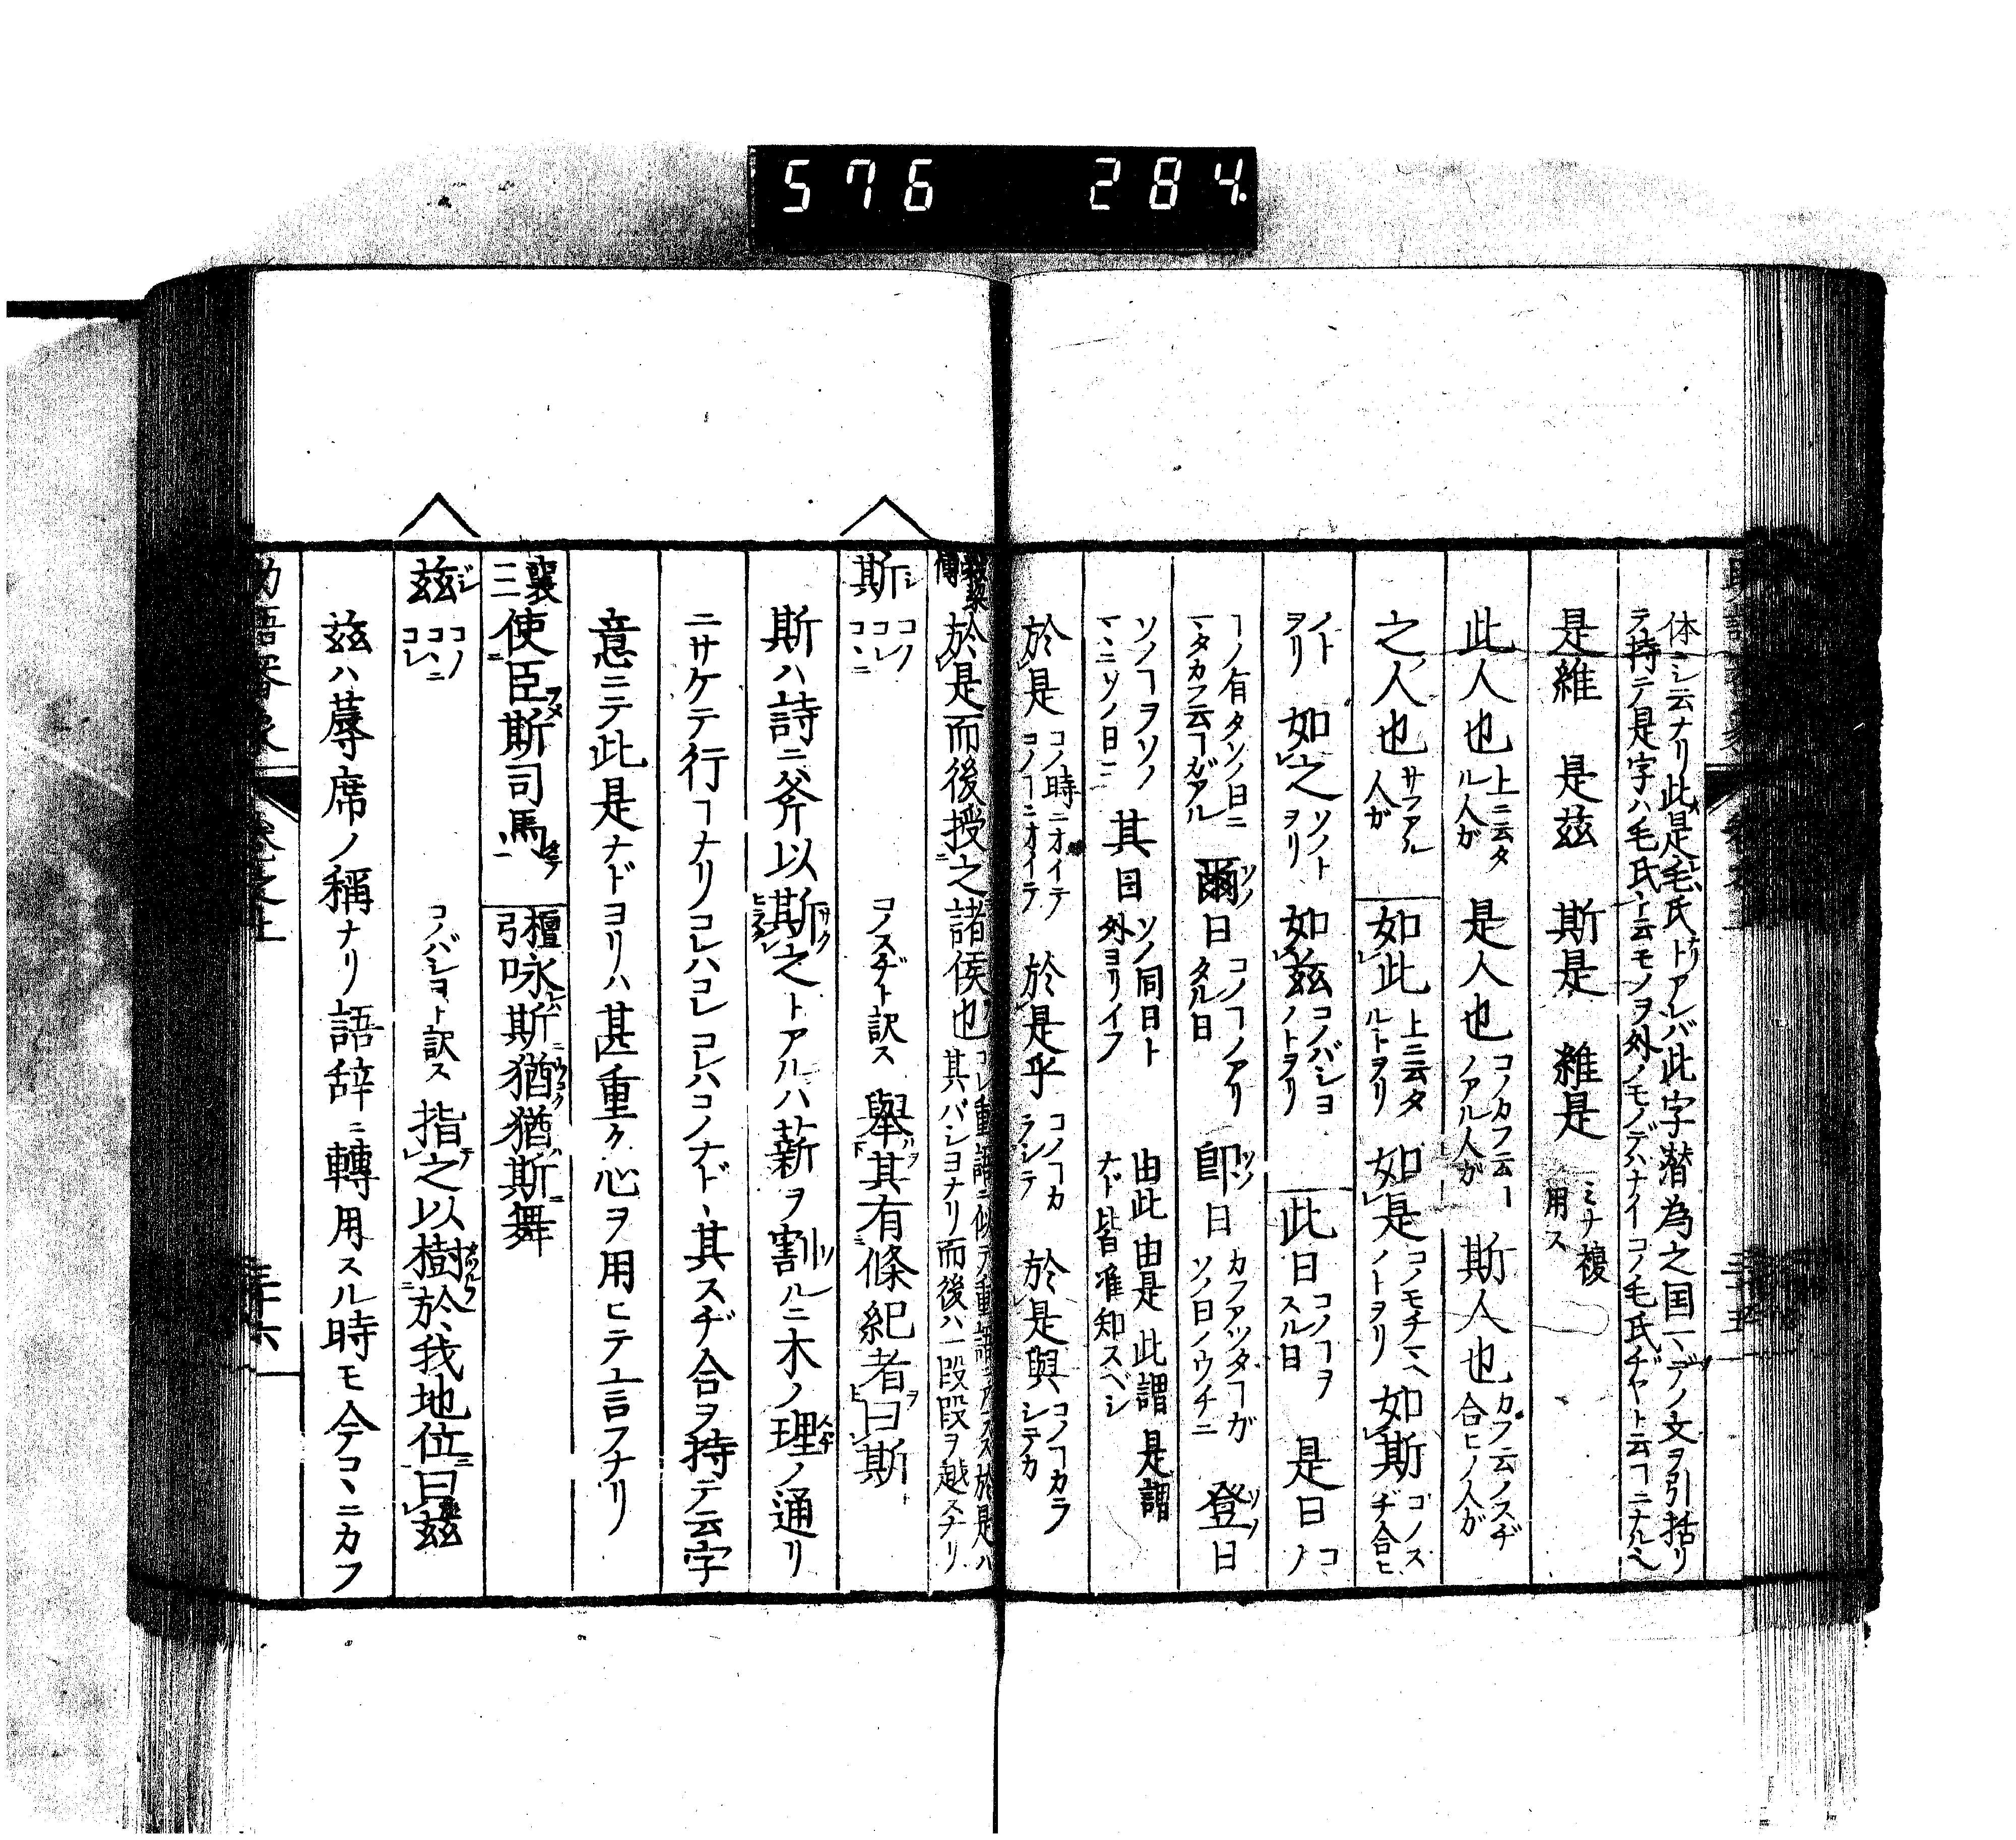 576 284
体ニシ云ナリ此是毛氏トアレバ此字潜為之国ノ文ヲ引括リ
テ持テ是字ハ毛氏ト云モノヲ外ノモノデハナイコノ毛氏ヂヤト云ヿニナル
是維 是茲 斯是 維是 ミナ複用ス
此人也 上ニ云タル人ガ 是人也 コノカフ云ノアル人ガ 斯人也 カフ云ノスヂ合ヒノ人ガ
之人也 サフアル人ガ 如此 上ニ云タルトヲリ 如是 コノモチマヘノトヲリ 如斯 コノスヂ合ヒ
ノトヲリ 如之 ソノトヲリ 如茲 コノバシヨノトヲリ 此日 コノヿヲスル日 是日 コノ
ヿノ有タソノ日ニマタカフ云ヿガアル 爾日 コノヿノアリタル日 即日 カフアツタヿガソノ日ノウチニ 登日
ソノヿヲソノマヽニソノ日ニ 其日 ソノ同日ト外ヨリイフ 由此由是 此謂 是謂 ナド皆准知スベシ
於是 コノ時ニオイテコノヿニオイテ 於是乎 コノヿカラシテ 於是與 コノヿカラシテカ
於是而後授之諸侯也 コレ重語ニ似テ重語ニアラス於是ハ其バシヨナリ而後ハ一段段ヲ越スナリ
斯 シ コノ コレ コヽニ コノスヂト訳ス 舉其有條紀者曰斯
斯ハ詩ニ斧以斯之トアルハ薪ヲ割ルニ木ノ理ノ通リ
ニサケテ行ヿナリコレハコレ コレハコノナド、其スヂ合ヲ持テ云字
意ニテ此是ナドヨリハ甚重ク心ヲ用ヒテ言フナリ
襄三 使臣斯司馬 檀弓 咏斯猶猶斯舞
茲 シ コノ コヽニ コレ コノバシヨト訳ス 指之以樹於我地位曰茲
茲ハ蓐席ノ稱ナリ語辞ニ轉用スル時モ今コヽニカフ